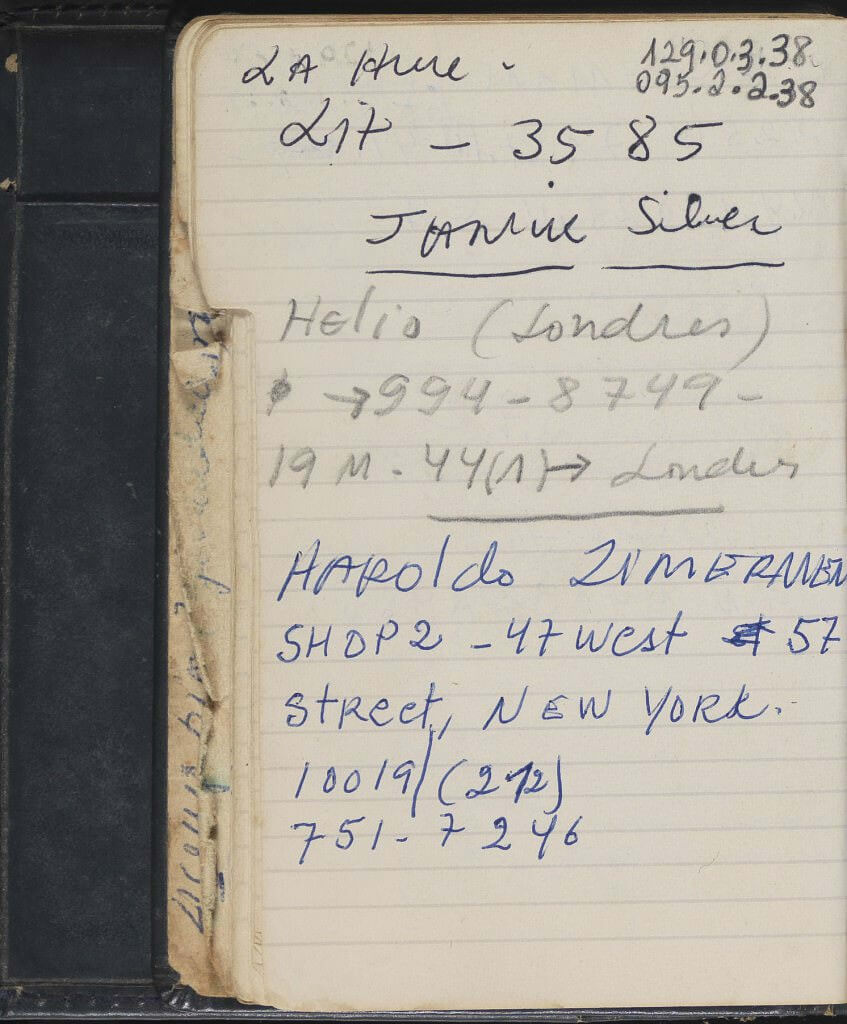 129.0.3.38
095.2.2.38
LA Hune.
LIT - 35 85
JANINE Silver
HElio (Londres)
→ 994-8749-
19 M. 44(1) → Londres
HAROldo ZIMERMEN
SHOP 2 - 47 West 57
StReet, NEW YORK.
10019/(212)
751-7246